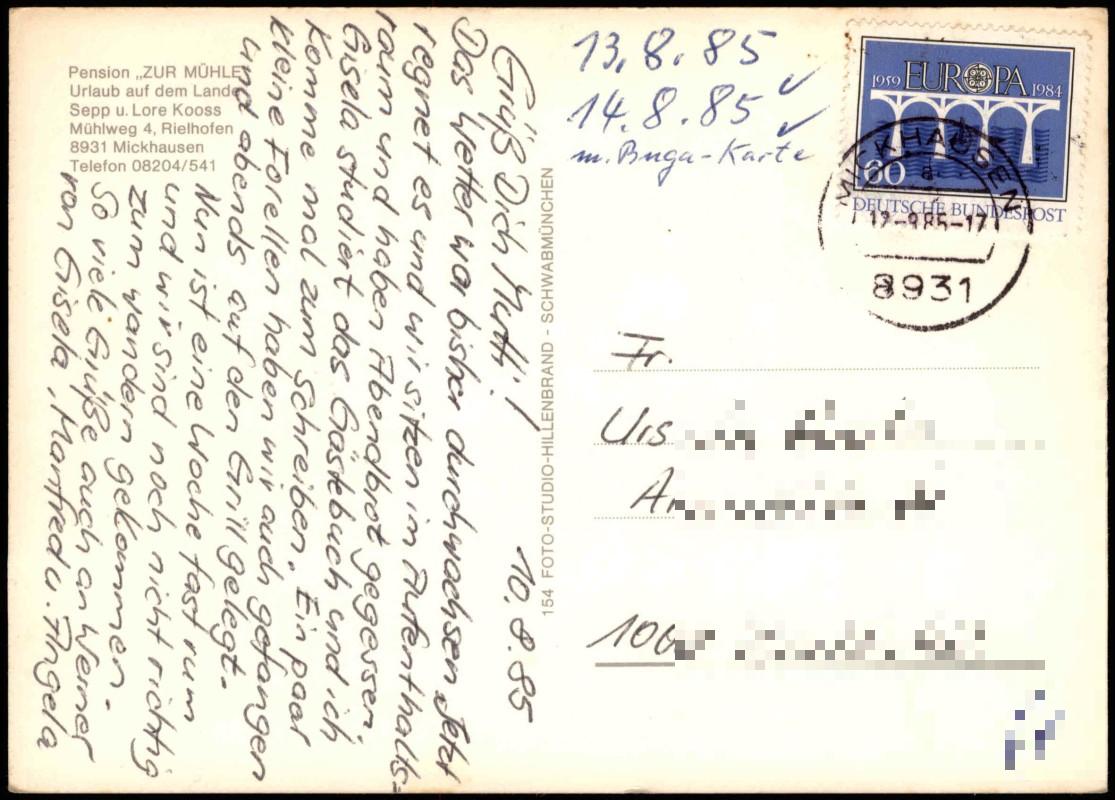 Pension „ZUR MÜHLE"
Urlaub auf dem Lande
Sepp u. Lore Kooss
Mühlweg 4, Rielhofen
8931 Mickhausen
Telefon 08204/541
10.8.85
Grüß Dich Mutti!
Das Wetter war bisher durchwachsen. Jetzt
regnet es und wir sitzen im Aufenthalts-
raum und haben Abendbrot gegessen
Gisela studiert das Gästebuch und ich
komme mal zum Schreiben. Ein paar
kleine Forellen haben wir auch gefangen
und abends auf den Grill gelegt.
Nun ist eine Woche fast rum
und wir sind noch nicht richtig
zum wandern gekommen.
So viele Grüße auch an Werner
von Gisela, Manfred u. Angela
154 FOTO-STUDIO-HILLENBRAND - SCHWABMÜNCHEN
13.8.85
14.8.85 ✓
m. Buga-Karte ✓
1959 EUROPA 1984
60
DEUTSCHE BUNDESPOST
MICKHAUSEN
a
12-8.85-17
8931
Fr.
Urs
An
100